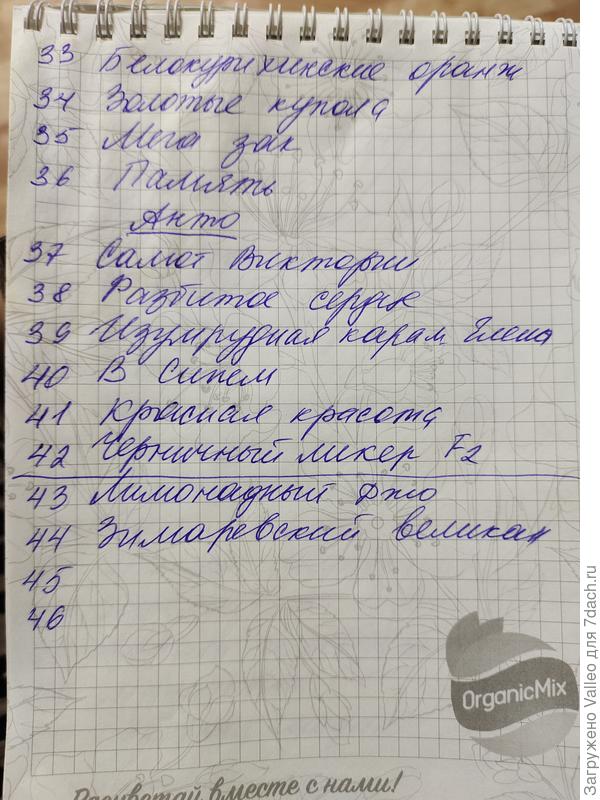 33 Белокурихинские оранж
34 Золотые купола
35 Мега зак
36 Память
Анто
37 Салют Виктории
38 Разбитое сердце
39 Изумрудная карам Глена
40 В Синем
41 Красная красота
42 Черничный ликер F2
43 Лимонадный Джо
44 Зимаревский великан
45
46
OrganicMix
Расцветай вместе с нами!
Загружено Valleo для 7dach.ru